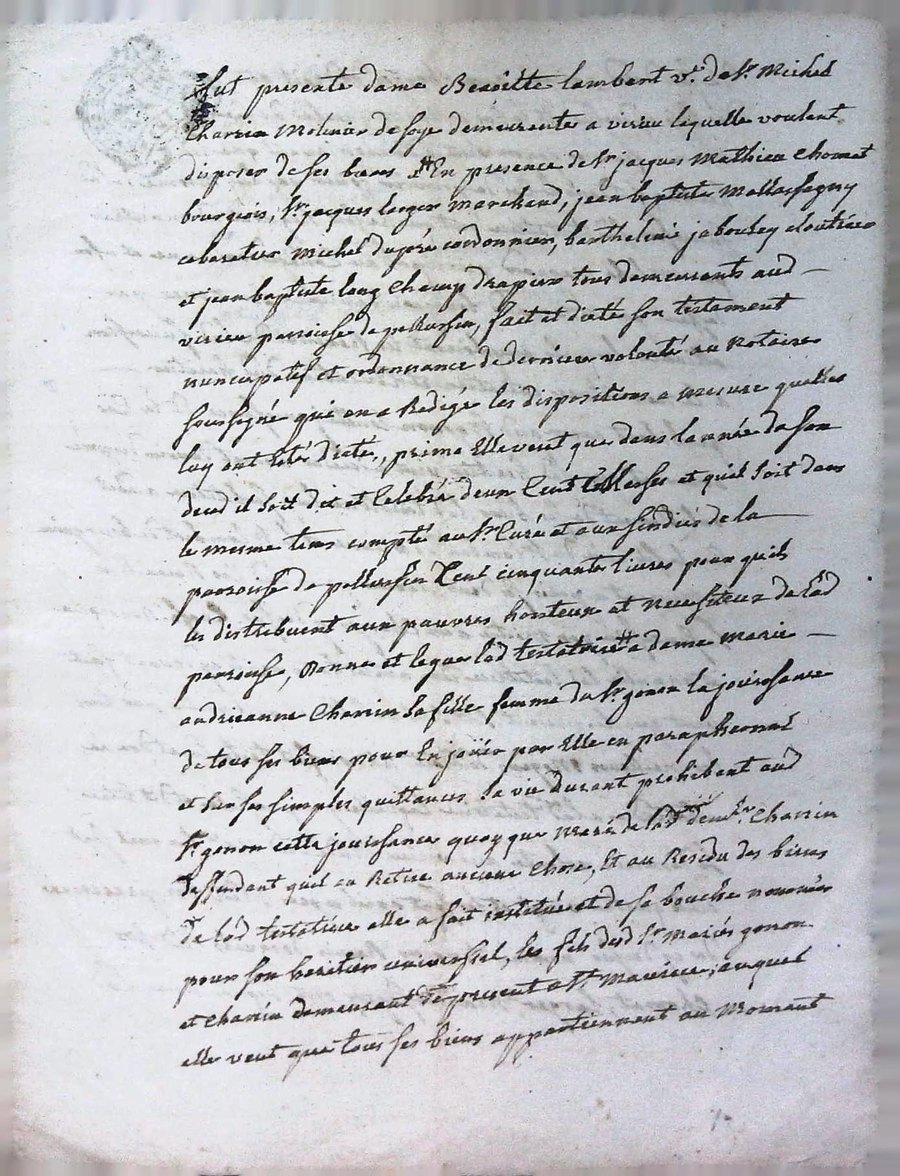 fut presente dame Benoitte lambert v.e de S.r Michel
Charrin Molinier de soye demeurante a virieu laquelle voulant
disposer de ses biens En presence de S.r jacques Mathieu Chomat
bourgeois, S.r jacques larger Marchand, jean baptiste Mallassagny
cabaretier Michel dupré cordonnier, barthelmi jabouley cloutier
et jean baptiste long Champ drapier tous demeurants aud
virieu parroisse de pellussin, fait et dicté son testament
nuncupatif et ordonnance de derniere volonté au Notaire
soussigné qui en a Redigé les dispositions a mesure quelles
luy ont été dicté, primo Elle veut que dans lannée de son
deced il soit dit et Celebré deux Cent Messes et quil soit dans
le mesme tems compté au S.r Curé et aux sindics de la
parroisse de pellussin Cent cinquante livres pour quils
les distribuent aux pauvres honteux et necessiteux de lad
parroisse, donne et legue lad testatrice a dame Marie
andrieanne Charrin sa fille femme du S.r gonon la jouissance
de tous ses biens pour En joüir par Elle en paraphernal
et sur ses simples quittances sa vie durant prohibant aud
S.r gonon cette jouissance quoy que mary de lad Charrin
deffendant quil en Retire aucune Chose, Et au Residu des biens
de lad testatrice elle a fait institué et de sa bouche nommée
pour son heritier universsel, les fils desd S.r Mariés gonon
et Charrin demeurant de present a S.t Maurice, auquel
elle veut que tous ses biens appartiennent au Moment